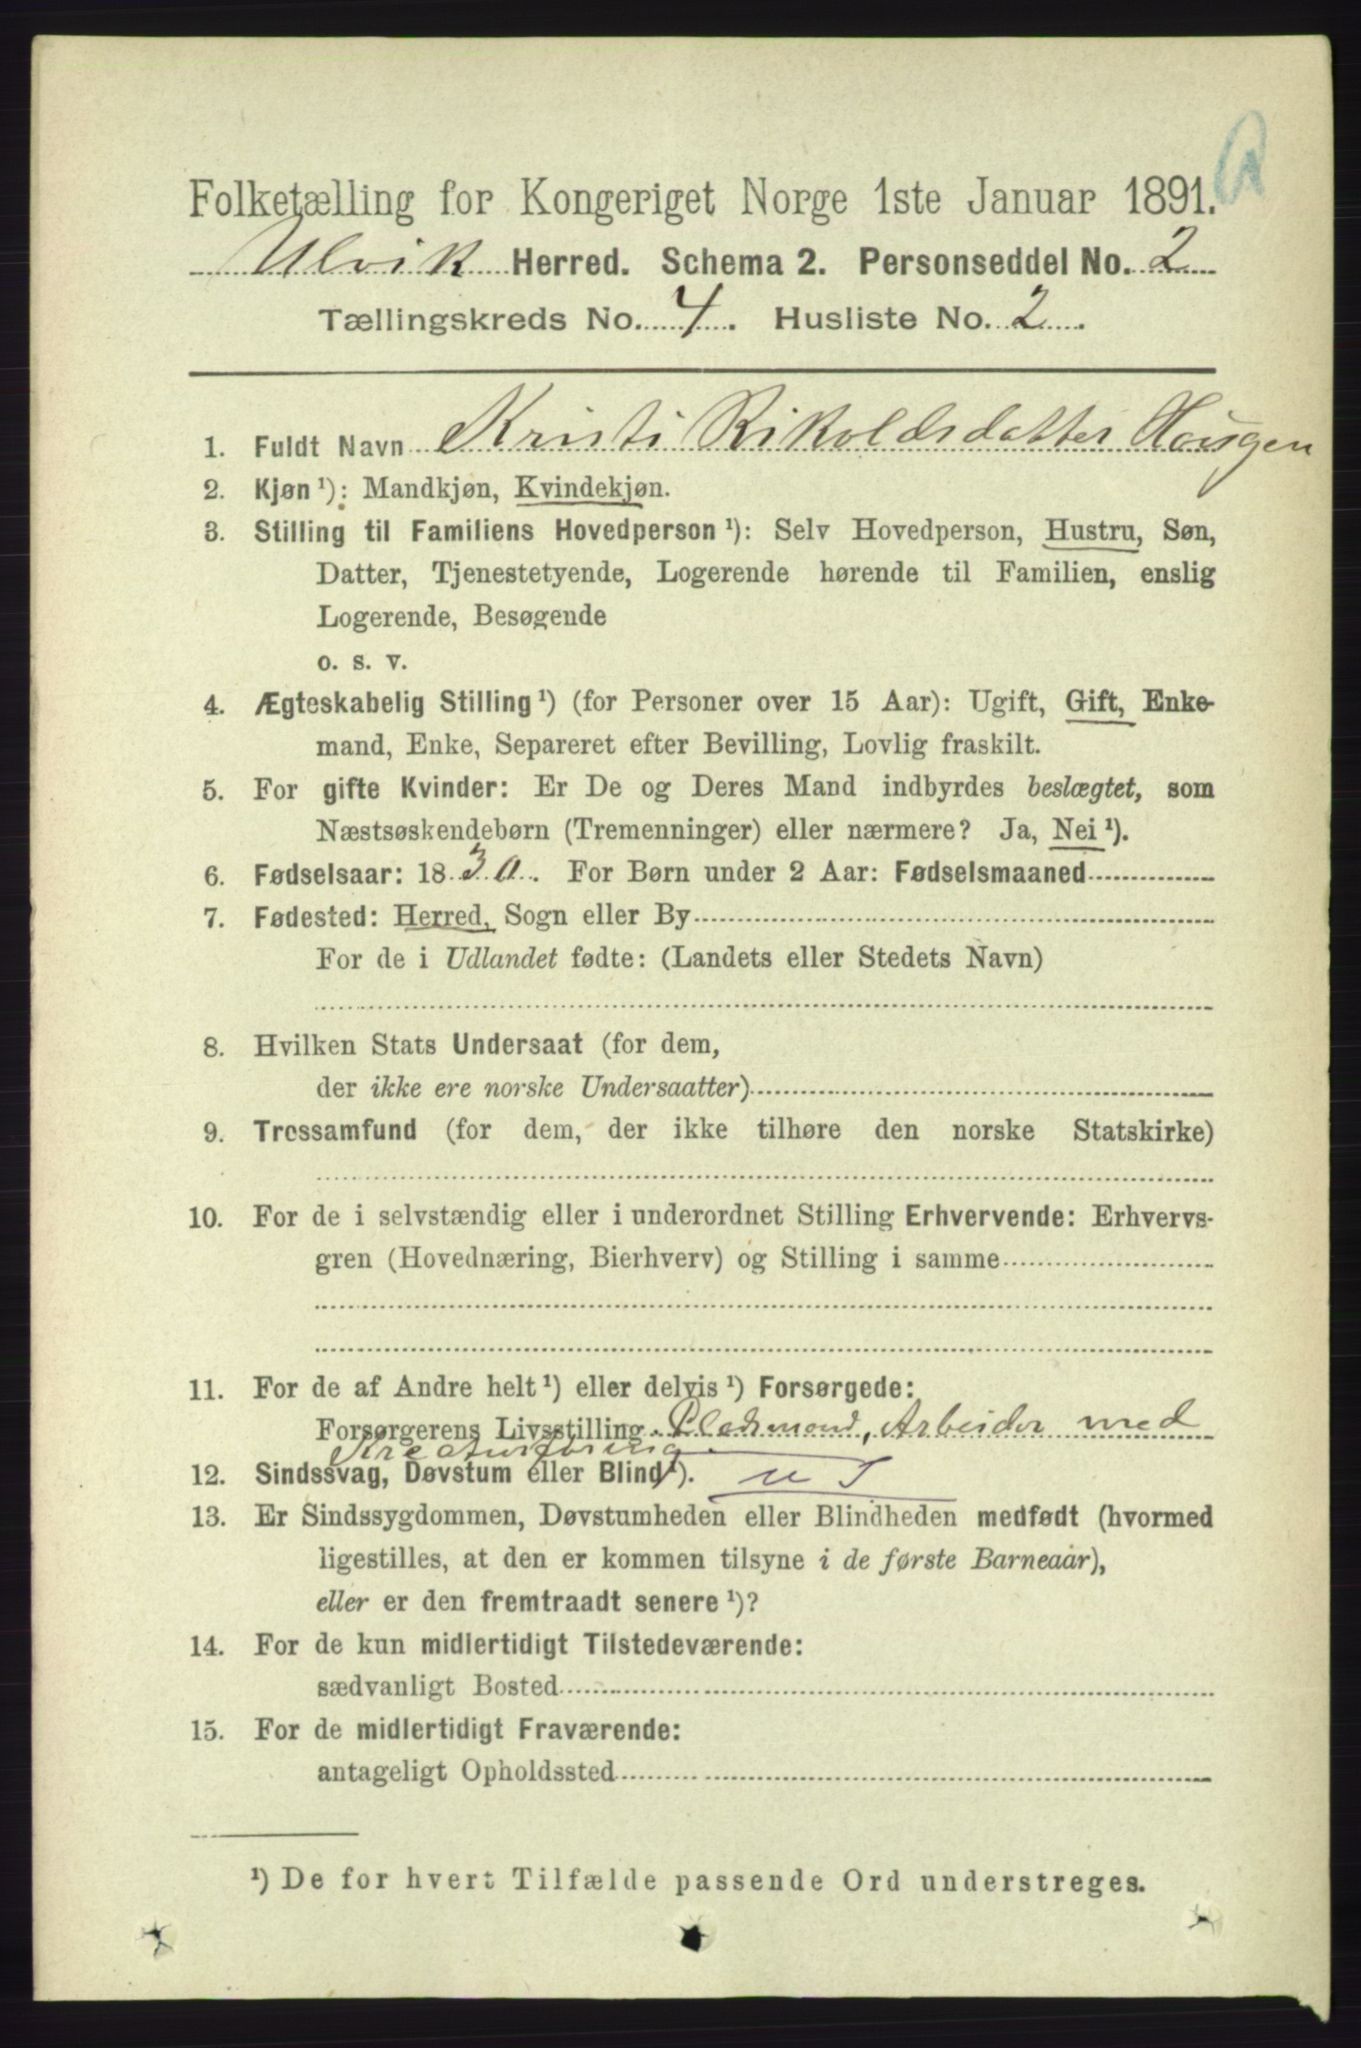 Folketælling for Kongeriget Norge 1ste Januar 1891.
Ulvik Herred. Schema 2. Personseddel No. 2
Tællingskreds No. 4. Husliste No. 2.
1. Fuldt Navn Kristi Rikoldsdatter Hougen
2. Kjøn ¹): Mandkjøn, Kvindekjøn.
3. Stilling til Familiens Hovedperson ¹): Selv Hovedperson, Hustru, Søn,
Datter, Tjenestetyende, Logerende hørende til Familien, enslig
Logerende, Besøgende
o. s. v.
4. Ægteskabelig Stilling ¹) (for Personer over 15 Aar): Ugift, Gift, Enke-
mand, Enke, Separeret efter Bevilling, Lovlig fraskilt.
5. For gifte Kvinder: Er De og Deres Mand indbyrdes beslægtet, som
Næstsøskendebørn (Tremenninger) eller nærmere? Ja, Nei ¹).
6. Fødselsaar: 1830. For Børn under 2 Aar: Fødselsmaaned
7. Fødested: Herred, Sogn eller By
For de i Udlandet fødte: (Landets eller Stedets Navn)
8. Hvilken Stats Undersaat (for dem,
der ikke ere norske Undersaatter)
9. Trossamfund (for dem, der ikke tilhøre den norske Statskirke)
10. For de i selvstændig eller i underordnet Stilling Erhvervende: Erhvervs-
gren (Hovednæring, Bierhverv) og Stilling i samme
11. For de af Andre helt ¹) eller delvis ¹) Forsørgede:
Forsørgerens Livsstilling Pladsmand, Arbeider med
Kreaturforing
12. Sindssvag, Døvstum eller Blind ¹).
13. Er Sindssygdommen, Døvstumheden eller Blindheden medfødt (hvormed
ligestilles, at den er kommen tilsyne i de første Barneaar),
eller er den fremtraadt senere ¹)?
14. For de kun midlertidigt Tilstedeværende:
sædvanligt Bosted
15. For de midlertidigt Fraværende:
antageligt Opholdssted
¹) De for hvert Tilfælde passende Ord understreges.